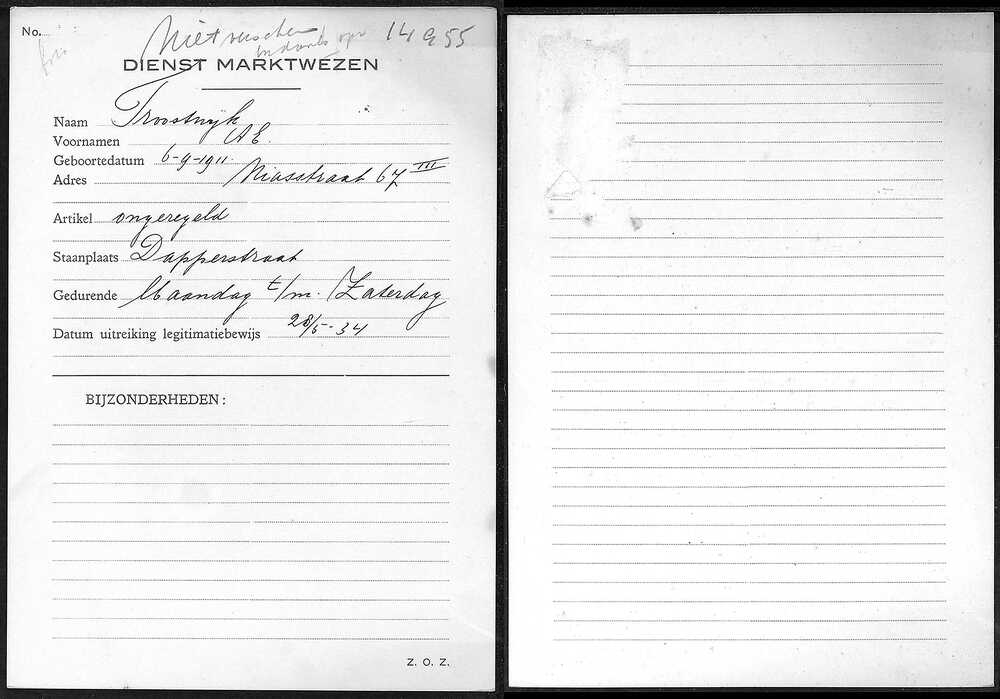 No.
Niet verschenen 14 9 55
DIENST MARKTWEZEN
Naam Troostwijk
Voornamen A E.
Geboortedatum 6-9-1911.
Adres Niasstraat 67 III
Artikel ongeregeld
Staanplaats Dapperstraat
Gedurende Maandag t/m. Zaterdag
Datum uitreiking legitimatiebewijs 28/5-34
BIJZONDERHEDEN:
Z. O. Z.